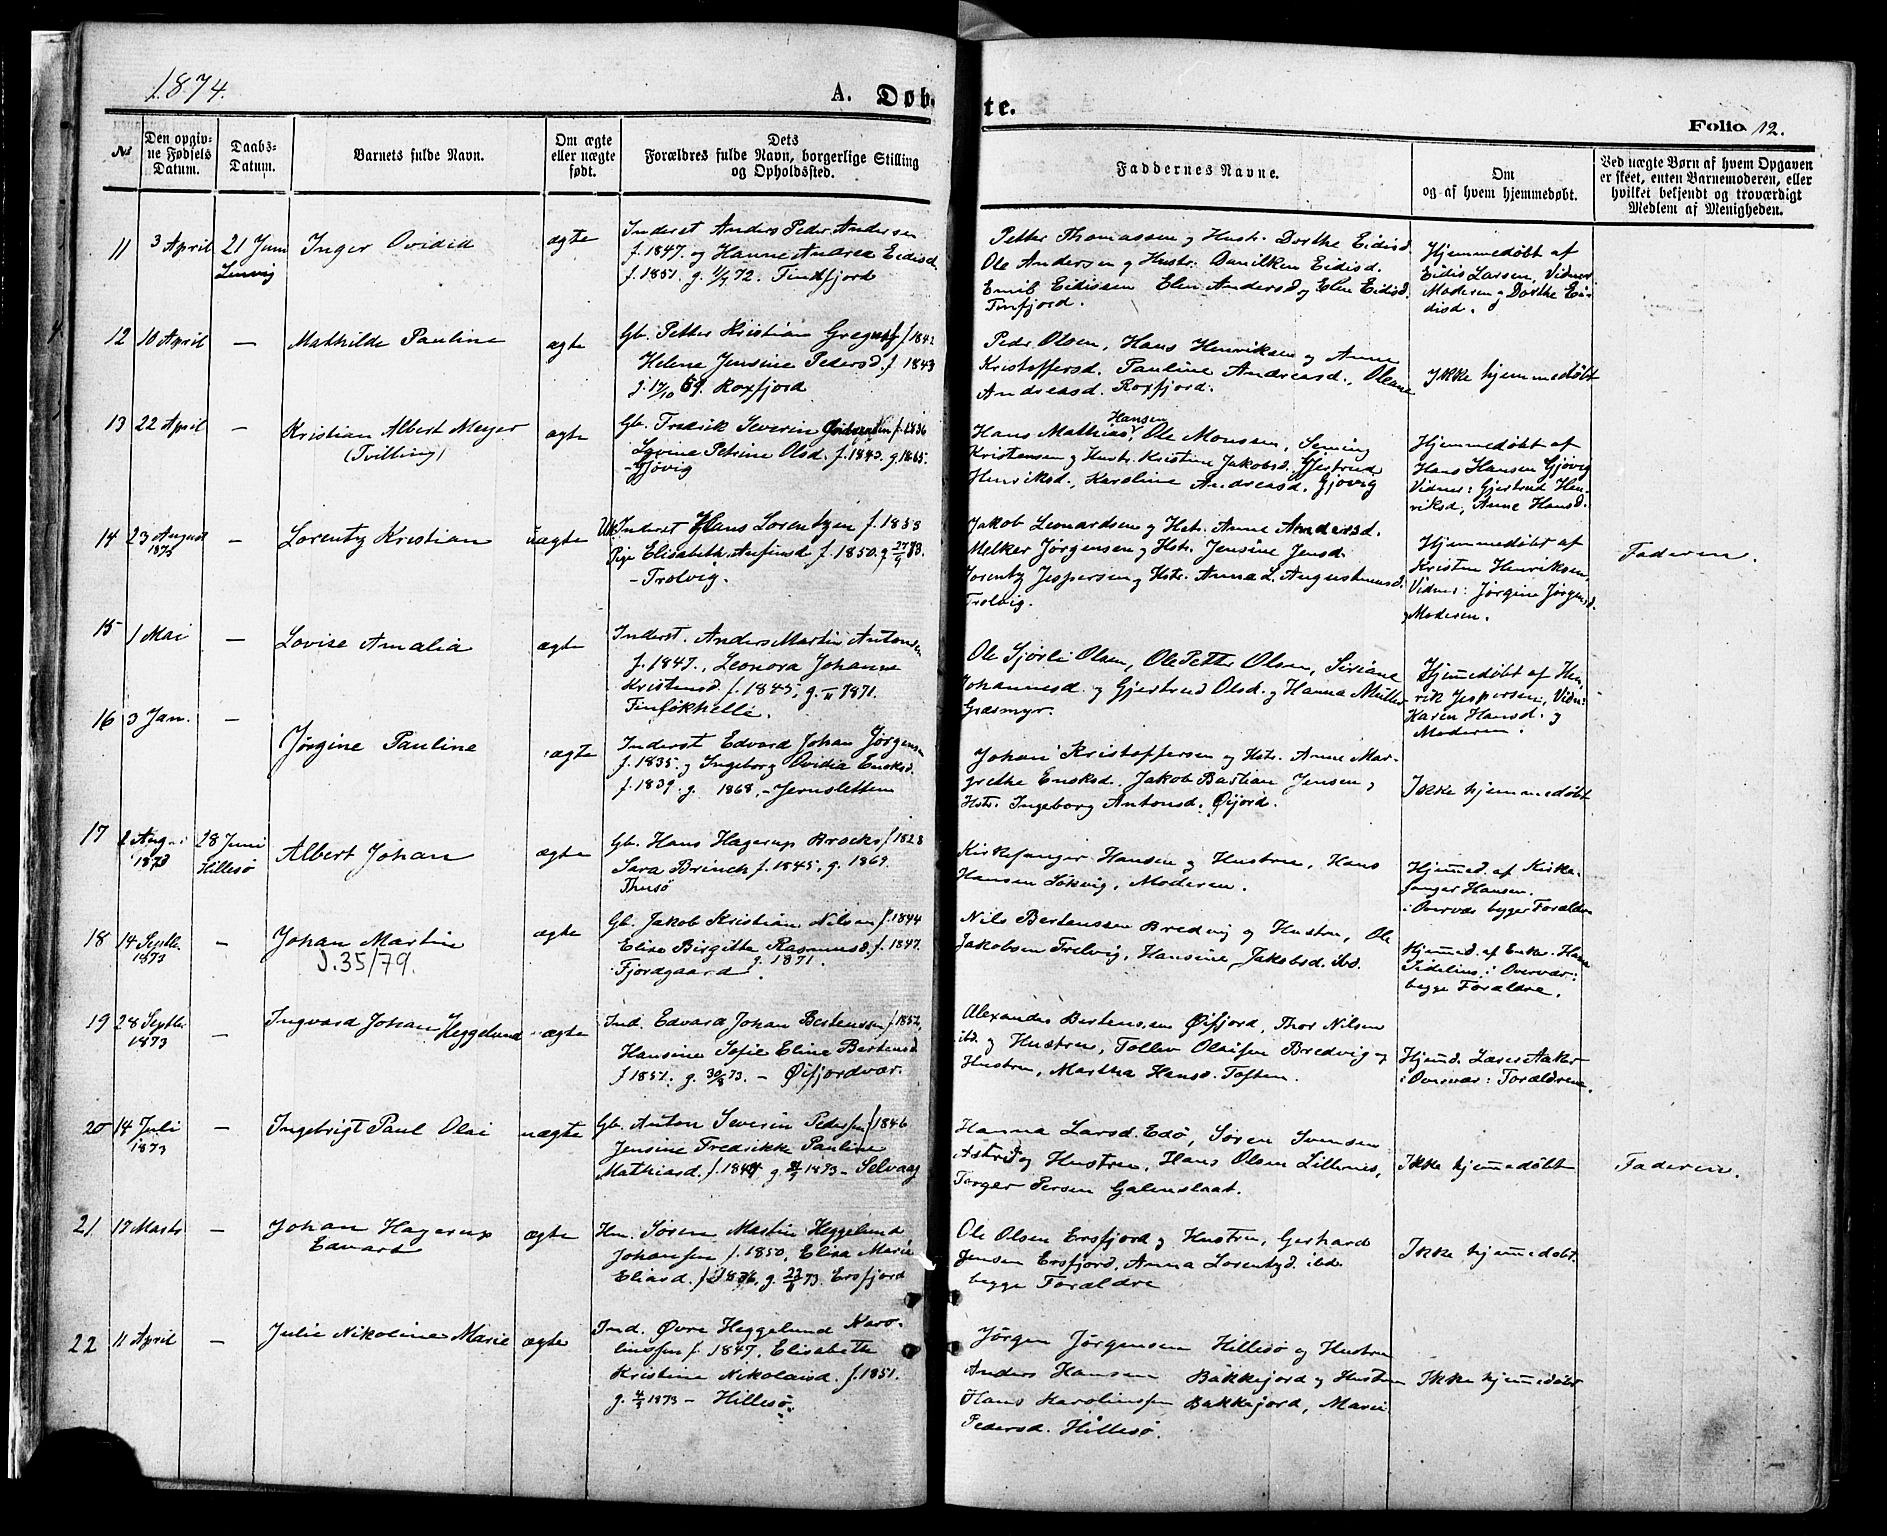 1874.
A. Døb-
te.
Folio 12.
No
Den opgiv-
ne Fødsels
Datum.
Daabs-
Datum.
Barnets fulde Navn.
Om ægte
eller uægte
født.
Dets
Forældres fulde Navn, borgerlige Stilling
og Opholdssted.
Faddernes Navne.
Om
og af hvem hjemmedøbt.
Ved uægte Børn af hvem Opgaven
er skeet, enten Barnemoderen, eller
hvilket bekjendt og troværdigt
Medlem af Menigheden.
11 3 April 21 Juni
Lenvig
Inger Ovidia
ægte
Inderst Anders Peder Andersen
f. 1847. og Hanne Andrea Eidisd.
f. 1851. g. 1/7 72. Tindfjord
Petter Thomassen g Hustr. Dorthe Eidisd.
Ole Andersen g Hustr. Danilken Eidisd.
Emil Eidissen Elen Andersd g Elen Eidisd.
Tinfjord.
Hjemmedøbt af
Eidis Larsen, Vidner
Moderen g Dorthe Ei-
disd.
12 10 April —
Mathilde Pauline
ægte
Gb. Petter Kristian f 1842
Helene Jensine Pedersd. f 1843
g. 17/10 69. Roxfjord
Peder Olsen, Hans Henriksen g Anne
Kristoffersd. Pauline Andreasd., Oleane
Andreasd. Roxfjord.
Ikke hjemmedøbt
13 22 April —
Kristian Albert Meyer
(Tvilling)
ægte
Gb. Fredrik Severin f. 1836
Lovine Petrine Olsd. f. 1843. g. 1865.
- Gjøvig
Hansen
Hans Mathias, Ole Monssen, Seming
Kristensen g Hustr. Kristine Jakobsd. Gjertrud
Henriksd., Karoline Andreasd. Gjøvig
Hjemmedøbt af
Hans Hansen Gjøvig
Vidner: Gjertrud Hen-
riksd, Anne Hansd.
14 23 August —
1872
Lorentz Kristian
uægte
Uk. Inderst Hans Lorentzen f. 1853
Pige Elisabeth Anfinsd f. 1850. g 27/9 73.
- Trolvig.
Jakob Leonardsen g Hstr. Anne Andersd.
Melker Jørgensen g Hst. Jensine Jensd.
Lorentz Jespersen g Hstr. Anna L. Augustinusd.
Trolvig.
Hjemmedøbt af
Kristen Henriksen,
Vidner: Jørgine Jørgensd.
g Moderen.
Faderen.
15 1 Mai —
Lovise Amalia
ægte
Inderst. Anders Martin Antonsen
f. 1847., Leonora Johanna
Kristensd. f. 1845, g. 1871.
Ole Sjørli Olsen, Ole Petter Olsen, Siriane
Johannesd. g Gjertrud Olsd. g Hanna Müller
Græsmyr.
Hjemmedøbt af Hen-
rik Jespersen, Vidn:
Karen Hansd. g
Moderen.
16 3 Jan. —
Jørgine Pauline
ægte
Inderst Edvard Johan Jørgensen
f. 1835. g Ingeborg Ovidia Enoksd.
f. 1839. g. 1868, - Jernsletten
Johan Kristoffersen g Hstr. Anne Mar-
grethe Enoksd. Jakob Bastian Jensen g
Hstr. Ingeborg Antonsd. Øijord.
Ikke hjemmedøbt
17 2 Aug. 28 Juni
1873 Hillesø
Albert Johan
ægte
Gb. Hans Hagerup Brocks f 1828
Sara Brinck f. 1845, g. 1869.
Thusø
Kirkesanger Hansen g Hustru, Hans
Hansen Løkvig, Moderen.
Hjemmed. af Kirke-
sanger Hansen.
i Overvær begge Forældre
18 14 Septbr. —
1873
Johan Martin
J. 35/79.
ægte
Gb. Jakob Kristian Nilsen f. 1844
Elise Birgitta Rasmusd. f. 1847.
g. 1871.
Fjordgaard
Nils Bertenssen Bredvig og Hustru, Ole
Jakobsen Trelvig, Hansine Jakobsd. ibd.
Hjemmed. af Enke Hans
i Overvær:
begge Forældre.
19 28 Septbr —
1873
Ingvard Johan Heggelund
uægte
Ind. Edvard Johan Bertenssen f 1852,
Hansine Sofie Eline Bertensd
f 1851. g. 30/8 73. - Øifjordvær.
Alexander Bertenssen Øifjord, Thor Nilsen
ibd. g Hustru, Tollev Olaisen Bredvig og
Hustru, Martha Hansd. Toften.
Hjemd. Lærer Aaker
i Overvær: Forældrene.
20 14 Juli —
1873
Ingebrigt Paul Olai
uægte
Gb. Anton Severin Pedersen f 1846
Jensine Fredrikke Pauline
Mathiasd. f. 1844 g 1873 - Selvaag
Hanna Larsd. Edø, Søren Svensen
Astrid g Hustru, Hans Olsen Lillernes,
Torger Persen
Ikke hjemmedøbt
Faderen.
21 17 Marts —
Johan Hagerup
Edvart
ægte
Hm. Søren Martin Heggelund
Johansen f. 1850, Elisa Marie
Eliasd. g. 73. Ersfjord
Ole Olsen Ersfjord g Hustru, Gerhard
Jensen Ersfjord, Anna Lorentzd. ibd.
begge Forældre
Ikke hjemmedøbt.
22 11 April —
Julie Nikoline Marie
ægte
Ind. Øvre Heggelund Karo-
linssen f. 1847, Elisabeth
Kristine Nikolaisd. f. 1851.
g. 1873 - Hillesø.
Jørgen Jørgensen Hillesø og Hustru
Anders Hansen Bakkejord g Hustru
Hans Karolinssen Bakkejord, Marie
Pedersd. Hillesø.
Ikke hjemmedøbt